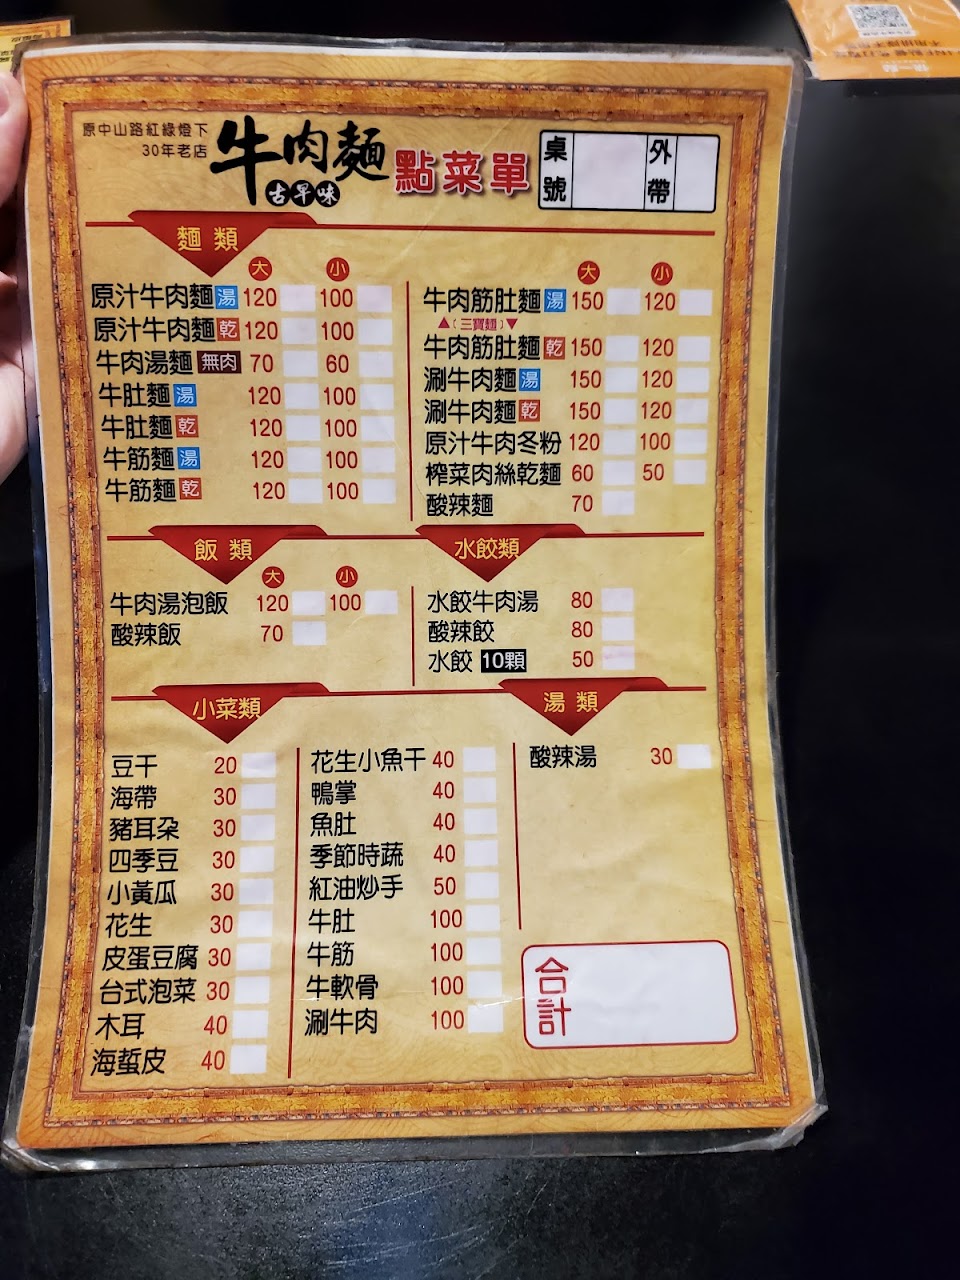 原中山路紅綠燈下
30年老店
牛肉麵
古早味
點菜單
桌號
外帶
麵類
大 小
原汁牛肉麵 湯 120 100
原汁牛肉麵 乾 120 100
牛肉湯麵 無肉 70 60
牛肚麵 湯 120 100
牛肚麵 乾 120 100
牛筋麵 湯 120 100
牛筋麵 乾 120 100
大 小
牛肉筋肚麵 湯 150 120
▲(三寶麵)▼
牛肉筋肚麵 乾 150 120
涮牛肉麵 湯 150 120
涮牛肉麵 乾 150 120
原汁牛肉冬粉 120 100
榨菜肉絲乾麵 60 50
酸辣麵 70
飯類
大 小
牛肉湯泡飯 120 100
酸辣飯 70
水餃類
水餃牛肉湯 80
酸辣餃 80
水餃 10顆 50
小菜類
豆干 20
海帶 30
豬耳朵 30
四季豆 30
小黃瓜 30
花生 30
皮蛋豆腐 30
台式泡菜 30
木耳 40
海蜇皮 40
花生小魚干 40
鴨掌 40
魚肚 40
季節時蔬 40
紅油炒手 50
牛肚 100
牛筋 100
牛軟骨 100
涮牛肉 100
湯類
酸辣湯 30
合計